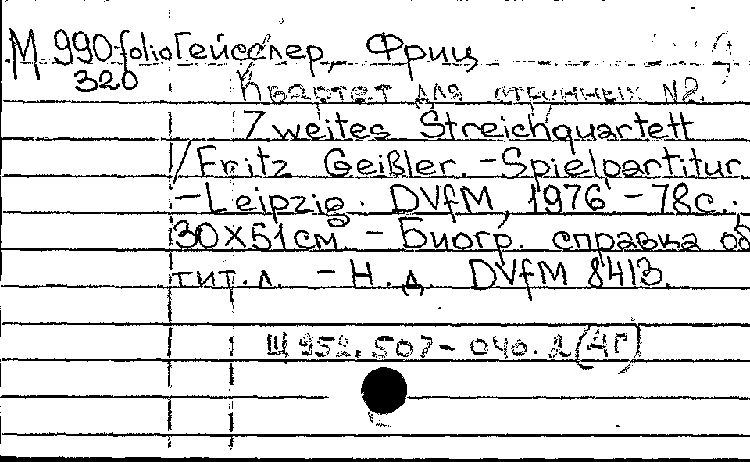 М 990 folio Гейсслер, Фриц
320 Квартет для струнных №2.
Zweites Streichquartett
/Fritz Geißler. - Spielpartitur
- Leipzig: DVfM, 1976 - 78с.;
30х51см. - Биогр. справка об
тит. л. - Н. д. DVfM 8413.
Щ 952.507-040.2(4Г)